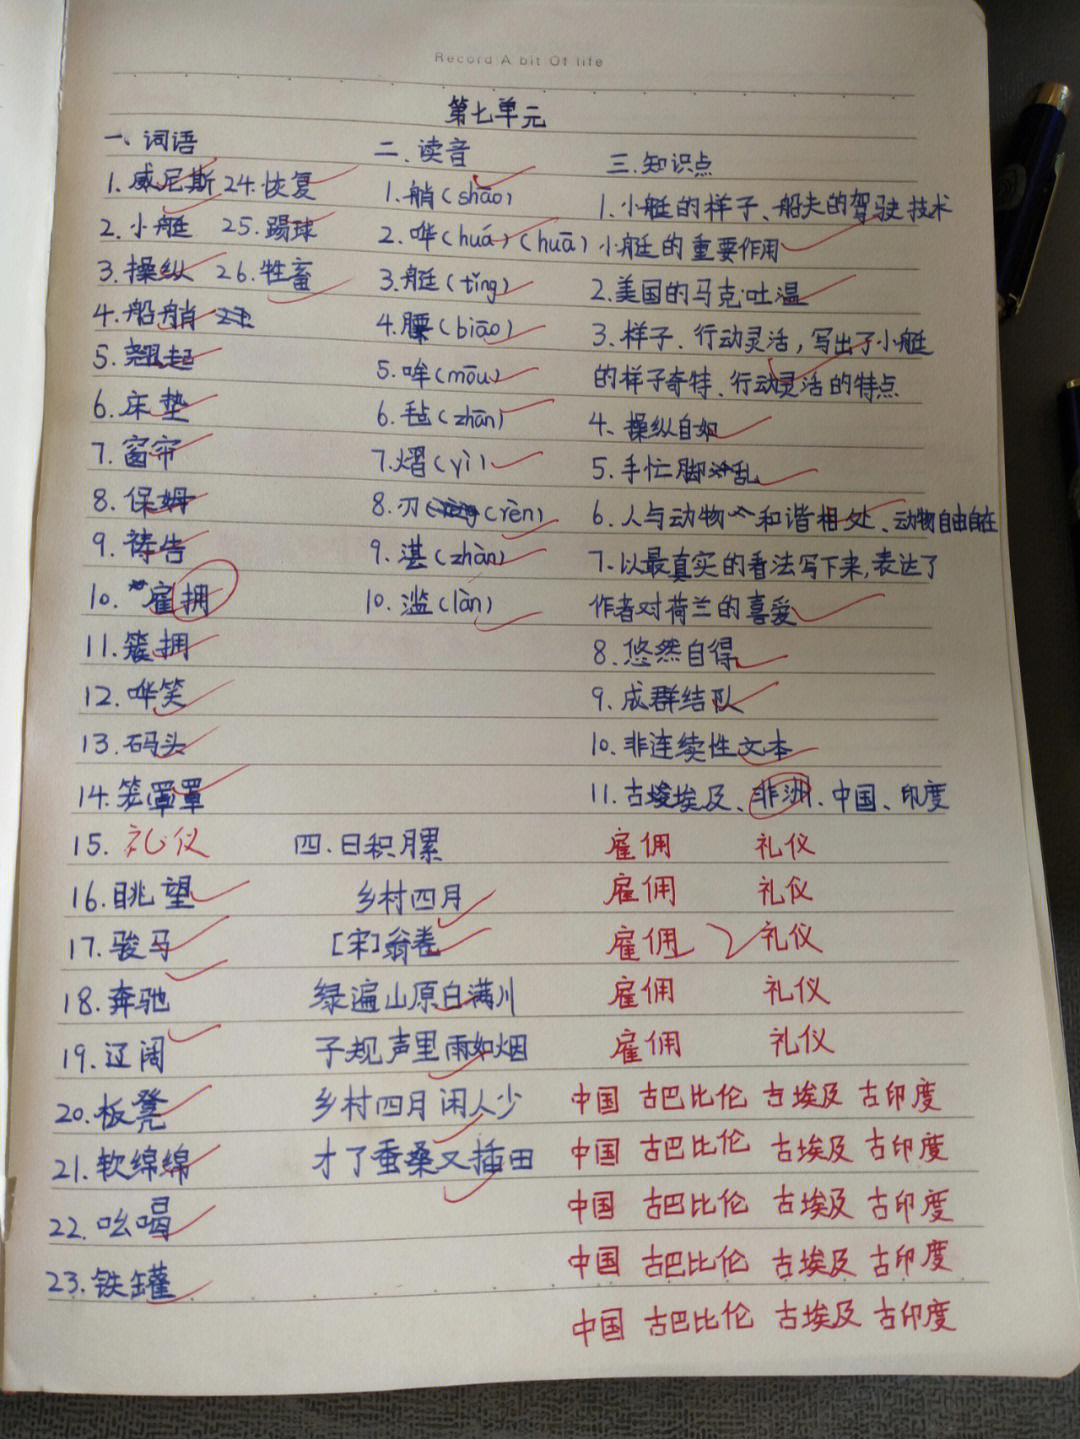 Record A bit Of life
第七单元
一、词语
1.威尼斯 24.恢复
2.小艇 25.踢球
3.操纵 26.牲畜
4.船艄
5.翘起
6.床垫
7.窗帘
8.保姆
9.祷告
10.雇拥
11.簇拥
12.哗笑
13.码头
14.笼罩罩
15.礼仪
16.眺望
17.骏马
18.奔驰
19.辽阔
20.板凳
21.软绵绵
22.吆喝
23.铁罐
二.读音
1.艄(shāo)
2.哗(huá)(huā)
3.艇(tǐng)
4.膘(biāo)
5.哞(mōu)
6.毡(zhān)
7.熠(yì)
8.刃(rèn)
9.湛(zhàn)
10.滥(làn)
三.知识点
1.小艇的样子、船夫的驾驶技术
小艇的重要作用
2.美国的马克·吐温
3.样子、行动灵活,写出了小艇
的样子奇特、行动灵活的特点
4、操纵自如
5.手忙脚乱
6.人与动物和谐相处、动物自由自在
7.以最真实的看法写下来,表达了
作者对荷兰的喜爱
8.悠然自得
9.成群结队
10.非连续性文本
11.古埃及、非洲、中国、印度
四.日积月累
乡村四月
[宋]翁卷
绿遍山原白满川
子规声里雨如烟
乡村四月闲人少
才了蚕桑又插田
雇佣 礼仪
雇佣 礼仪
雇佣 礼仪
雇佣 礼仪
雇佣 礼仪
中国 古巴比伦 古埃及 古印度
中国 古巴比伦 古埃及 古印度
中国 古巴比伦 古埃及 古印度
中国 古巴比伦 古埃及 古印度
中国 古巴比伦 古埃及 古印度